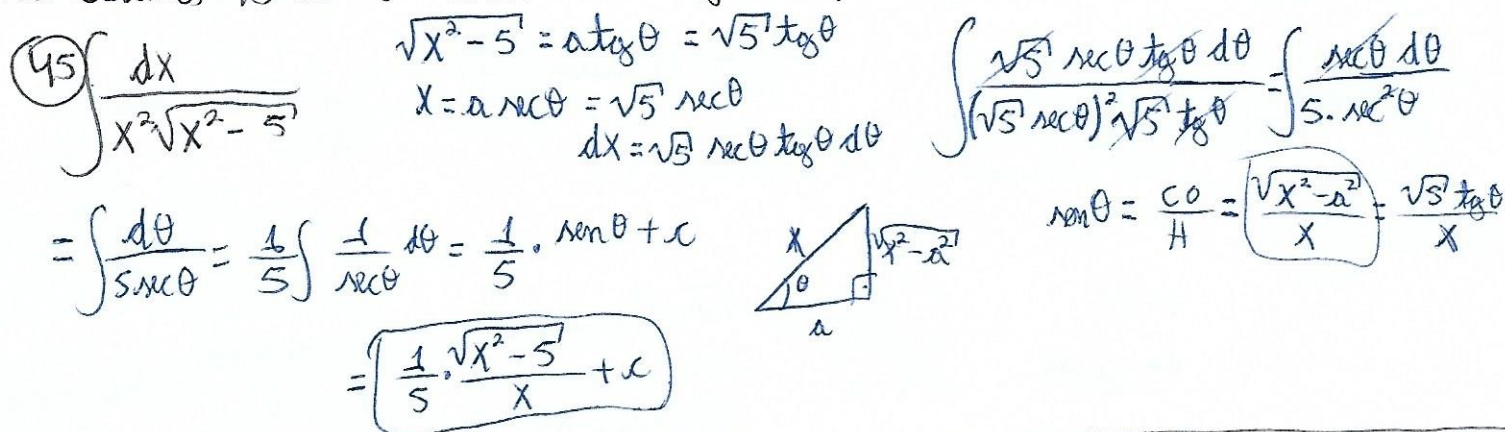 45) ∫ dx / (x²√(x² - 5))
√(x² - 5) = a tgθ = √5 tgθ
x = a secθ = √5 secθ
dx = √5 secθ tgθ dθ
∫ √5 secθ tgθ dθ / ((√5 secθ)² √5 tgθ) = ∫ secθ dθ / (5. sec²θ)
= ∫ dθ / (5 secθ) = 1/5 ∫ 1/secθ dθ = 1/5 . senθ + c
x √(x² - a²) θ a
senθ = CO/H = √(x² - a²)/x = √5 tgθ/x
= 1/5 . √(x² - 5)/x + c